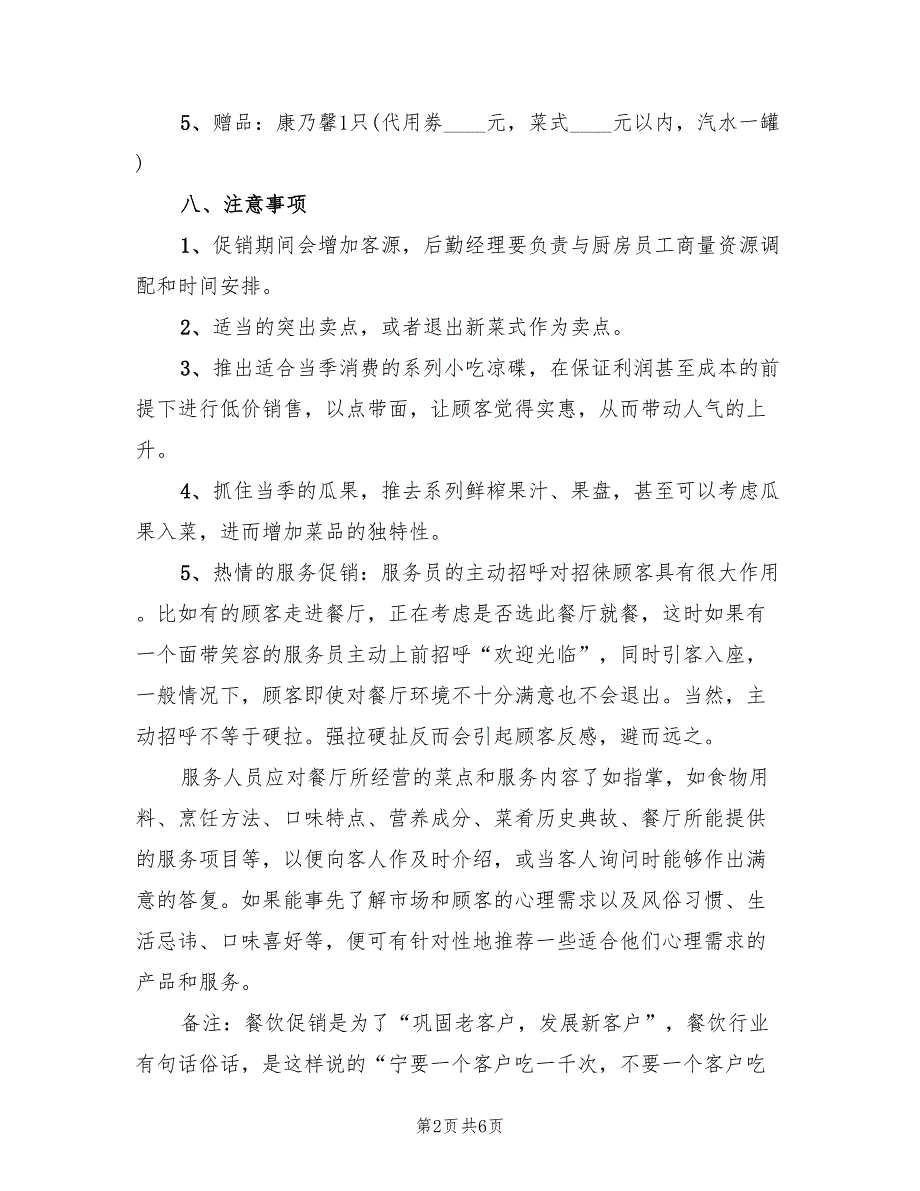 5、赠品：康乃馨1只(代用券____元，菜式____元以内，汽水一罐
)
八、注意事项
1、促销期间会增加客源，后勤经理要负责与厨房员工商量资源调
配和时间安排。
2、适当的突出卖点，或者退出新菜式作为卖点。
3、推出适合当季消费的系列小吃凉碟，在保证利润甚至成本的前
提下进行低价销售，以点带面，让顾客觉得实惠，从而带动人气的上
升。
4、抓住当季的瓜果，推去系列鲜榨果汁、果盘，甚至可以考虑瓜
果入菜，进而增加菜品的独特性。
5、热情的服务促销：服务员的主动招呼对招徕顾客具有很大作用
。比如有的顾客走进餐厅，正在考虑是否选此餐厅就餐，这时如果有
一个面带笑容的服务员主动上前招呼“欢迎光临”，同时引客入座，
一般情况下，顾客即使对餐厅环境不十分满意也不会退出。当然，主
动招呼不等于硬拉。强拉硬扯反而会引起顾客反感，避而远之。
服务人员应对餐厅所经营的菜点和服务内容了如指掌，如食物用
料、烹饪方法、口味特点、营养成分、菜肴历史典故、餐厅所能提供
的服务项目等，以便向客人作及时介绍，或当客人询问时能够作出满
意的答复。如果能事先了解市场和顾客的心理需求以及风俗习惯、生
活忌讳、口味喜好等，便可有针对性地推荐一些适合他们心理需求的
产品和服务。
备注：餐饮促销是为了“巩固老客户，发展新客户”，餐饮行业
有句话俗话，是这样说的“宁要一个客户吃一千次，不要一个客户吃
第2页共6页